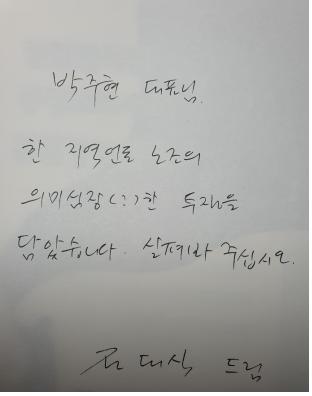 박주현 대표님.
한 지역언론 노조의
의미심장(?)한 투쟁을
담았습니다. 살펴봐 주십시오.
대식 드림